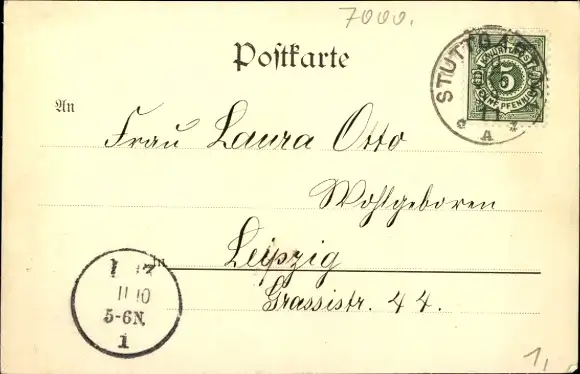 7000.
Postkarte
STUTTGART
5
FÜNF PFENNIG
11
A
An
Frau Laura Otto
Wohlgeboren
in
Leipzig
Grassistr. 44.
11 10
5-6N.
1
1,